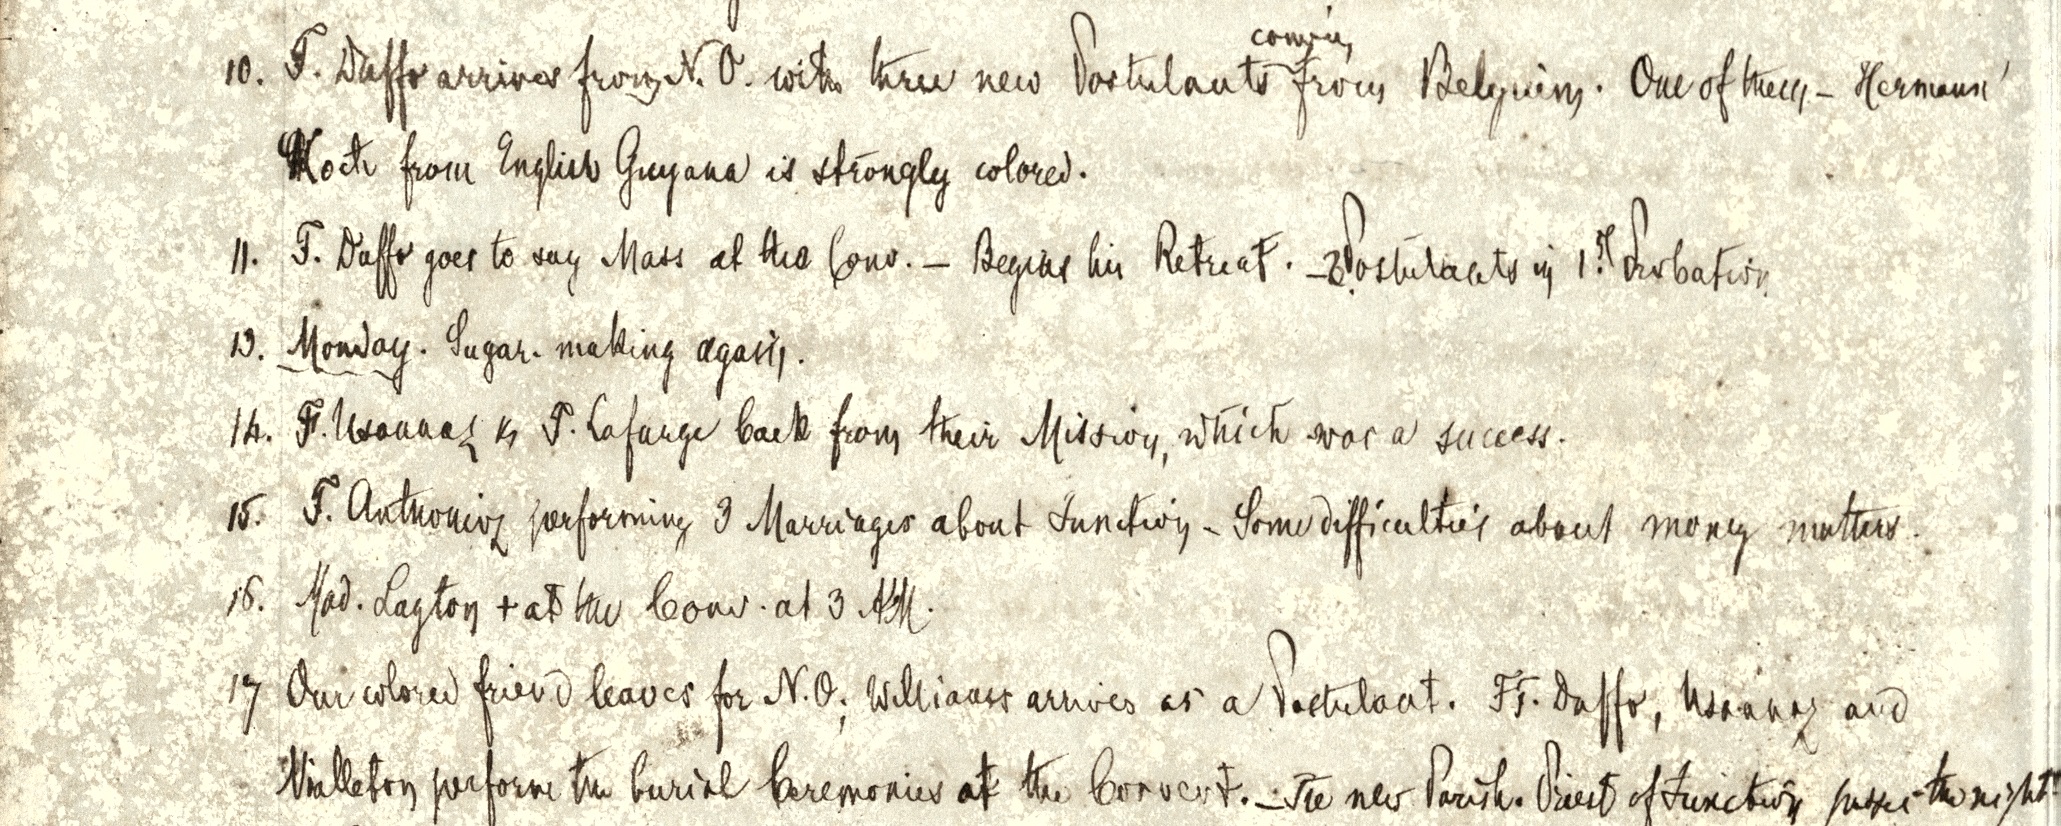 coming
10. F. Duffo arrives from N. O. with three new Postulants from Belgium. One of them – Hermann
Koch from English Guyana is strongly colored.
11. F. Duffo goes to say Mass at the Conv. – Begins his Retreat. – 3 Postulants in 1st Probation
13. Monday. Sugar-making again.
14. F. Usannaz & F. Lafarge back from their Mission, which was a success.
15. F. Anthonioz performing 3 Marriages about Junction – Some difficulties about money matters.
16. Mad. Layton + at the Conv. at 3 A.M.
17 Our colored friend leaves for N.O.; Williams arrives as a Postulant. FF. Duffo, Usannaz and
Vialleton perform the burial Ceremonies at the Convent. – The new Parish-Priest of Junction passes the night